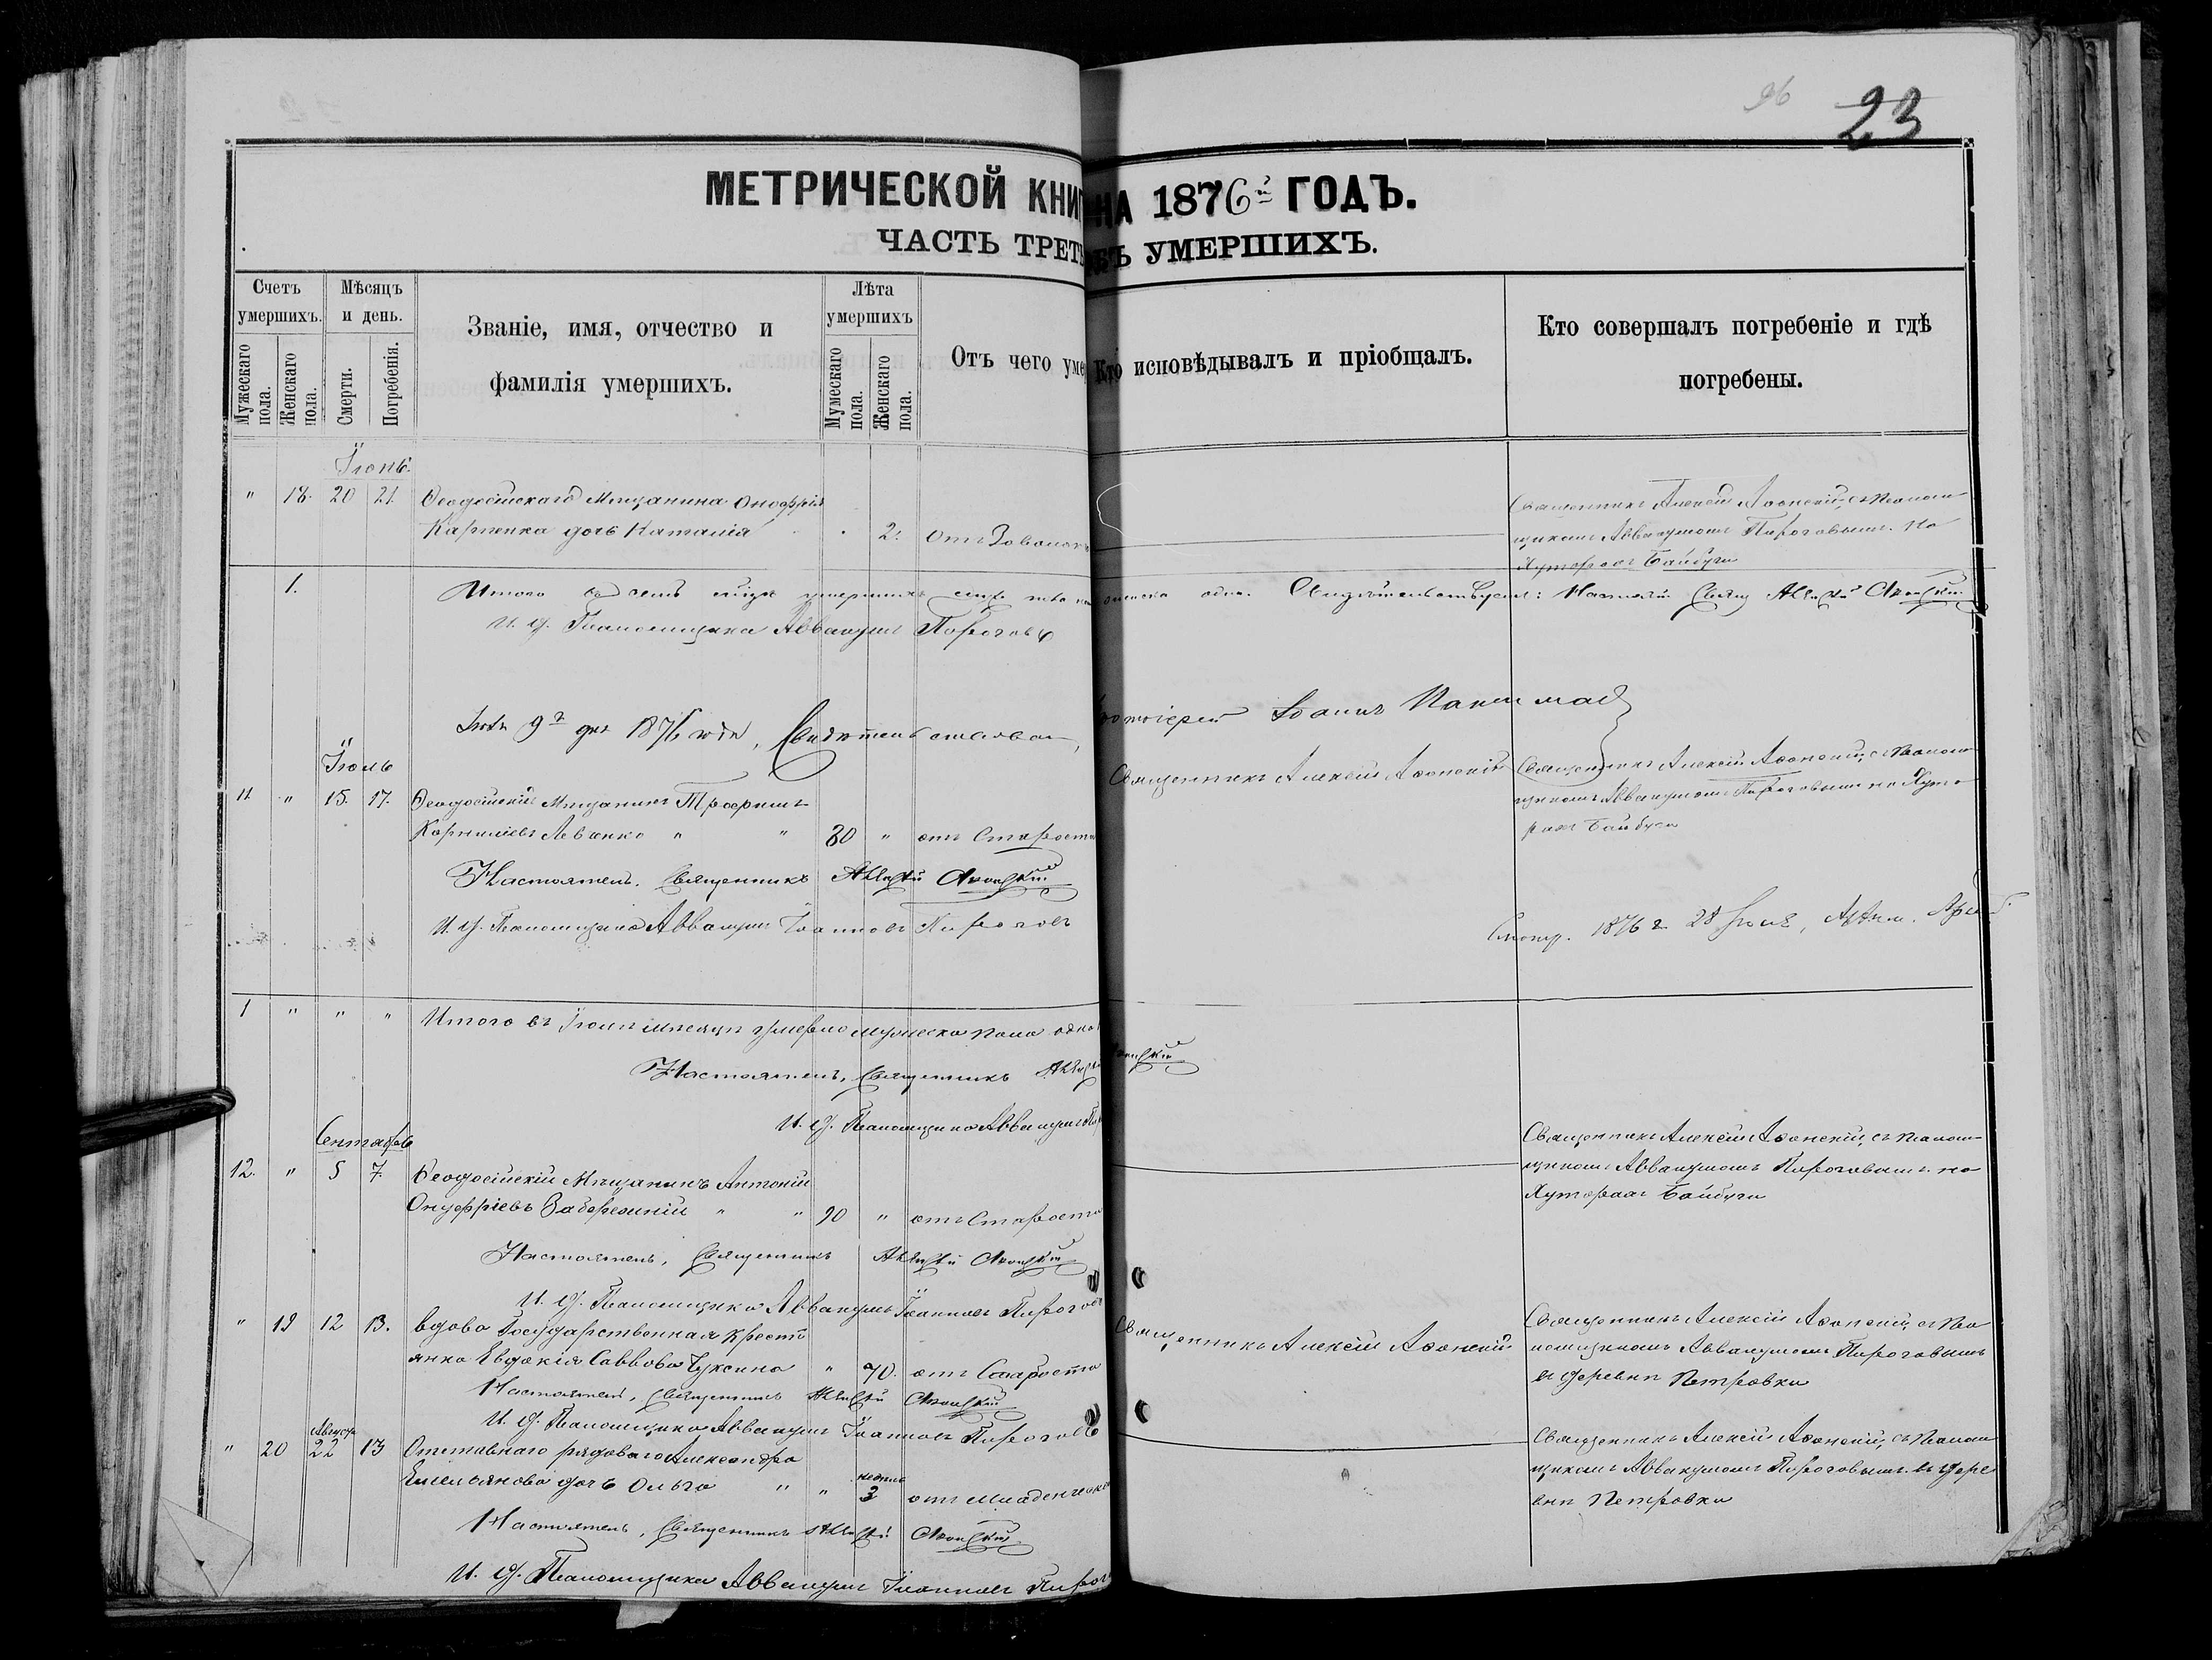 96 23
МЕТРИЧЕСКОЙ КНИГ НА 1876й ГОДЪ.
ЧАСТЬ ТРЕТЬ ОБЪ УМЕРШИХЪ.
Счетъ умершихъ.
Мужескаго пола.
Женскаго пола.
Мѣсяцъ и день.
Смерти.
Погребенія.
Званіе, имя, отчество и
фамилія умершихъ.
Лѣта умершихъ
Мумескаго пола.
Женскаго пола.
Отъ чего уме
Кто исповѣдывалъ и пріобщалъ.
Кто совершалъ погребеніе и гдѣ
погребены.
Іюнь.
" 18. 20 21. Ѳеодосійскаго Мѣщанина Онофрія
Карпенка дочь Наталія 2. отъ
Священникъ Алексій Аѳонскій, съ Поном
щикомъ Аввакумомъ Пироговымъ. На
Хуторахъ Байбуги
1. Итого умершихъ одна. Свидѣтельствуемъ: Настоят. Свящ Алексій Аѳонскій
И. д. Паномщика Аввакумъ Пироговъ
9го дня 1876 года, Свидѣтельствовалъ, Протоіерей Іоаннъ
Іюль
11 " 15. 17. Ѳеодосійскій Мѣщанинъ Трофимъ
Корниліевъ Леванко " " 80 " отъ Старости
Священникъ Алексій Аѳонскій
Священникъ Алексій Аѳонскій, съ Поном
щикомъ Аввакумомъ Пироговымъ на Хуто
рахъ Байбуги
Настоятель, Священникъ Алексѣй Аѳонскій
И. д. Паномщика Аввакумъ Іоанновъ Пироговъ
1876 г. 28 Іюля,
1 " " " Итого въ Іюлѣ мѣсяцѣ умерло мужеска пола одна
Настоятель, Священникъ Алексѣй Аѳонскій
И. д. Паномщика Аввакумъ Пи
Сентябрь
12. " 5 7. Ѳеодосійскій Мѣщанинъ Антоній
Онуфріевъ " " 90 " отъ Старости
Священникъ Алексій Аѳонскій, съ Поном
щикомъ Аввакумомъ Пироговымъ. на
Хуторахъ Байбуги
Настоятель, Священникъ Алексѣй Аѳонскій
И. д. Паномщика Аввакумъ Іоанновъ Пирогов
" 19 12 13. вдова Государственная Крестъ
янка Евдокія Саввова " 70. отъ Старости
Священникъ Алексій Аѳонскій
Священникъ Алексій Аѳонскій, съ По
номщикомъ Аввакумомъ Пироговымъ
въ деревнѣ Петровки
Настоятель, Священникъ Алексѣй Аѳонскій
И. д. Паномщика Аввакумъ Іоанновъ Пироговъ
Август
" 20 22 13 Отставнаго рядоваго Александра
Емельянова дочь Ольга " " недѣль 3 отъ Младенческ
Священникъ Алексій Аѳонскій, съ Поном
щикомъ Аввакумомъ Пироговымъ. въ дере
внѣ Петровки
Настоятель, Священникъ Алексѣй Аѳонскій
И. д. Паномщика Аввакумъ Іоанновъ Пирог